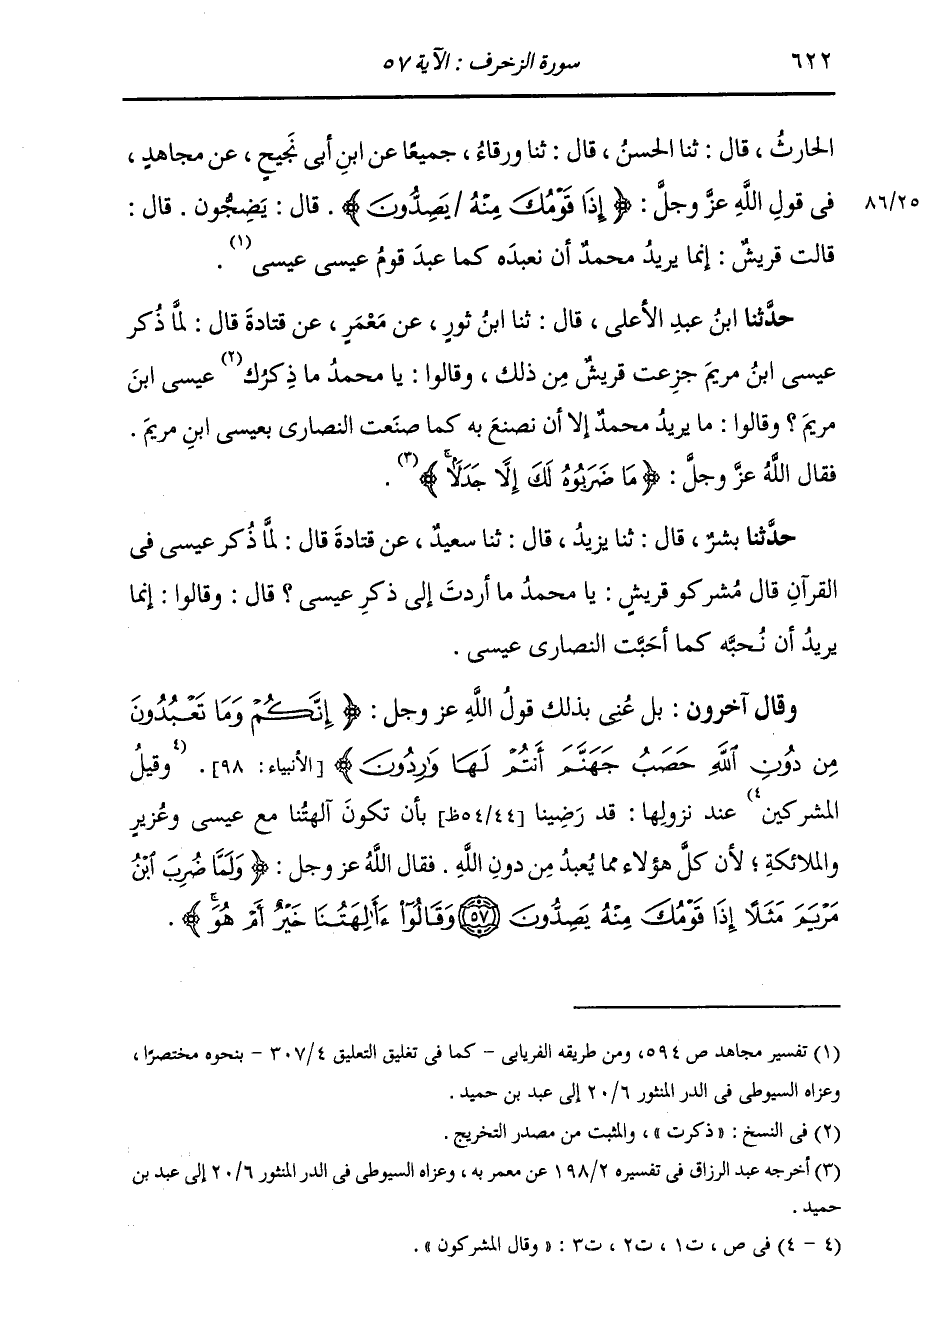 ٦٢٢ سورة الزخرف : الآية ٥٧
الحارثُ ، قال : ثنا الحسنُ ، قال : ثنا ورقاءُ ، جميعًا عن ابنِ أبى نَجيحٍ ، عن مجاهدٍ ،
٨٦/٢٥ فى قولِ اللَّهِ عزَّ وجلَّ : ﴿ إِذَا قَوْمُكَ مِنْهُ / يَصِدُّونَ ﴾ . قال : يَضِجُّون . قال :
قالت قريشٌ : إنما يريدُ محمدٌ أن نعبدَه كما عبدَ قومُ عيسى عيسى(١) .
حدَّثنا ابنُ عبدِ الأعلى ، قال : ثنا ابنُ ثورٍ ، عن مَعْمَرٍ ، عن قتادةَ قال : لمَّا ذُكر
عيسى ابنُ مريمَ جزِعت قريشٌ مِن ذلك ، وقالوا : يا محمدُ ما ذِكرُك(٢) عيسى ابنَ
مريمَ ؟ وقالوا : ما يريدُ محمدٌ إلا أن نصنعَ به كما صنَعت النصارى بعيسى ابنِ مريمَ .
فقال اللَّهُ عزَّ وجلَّ : ﴿ مَا ضَرَبُوهُ لَكَ إِلَّا جَدَلًاۚ ﴾(٣) .
حدَّثنا بشرٌ ، قال : ثنا يزيدُ ، قال : ثنا سعيدٌ ، عن قتادةَ قال : لمَّا ذُكر عيسى فى
القرآنِ قال مُشركو قريشٍ : يا محمدُ ما أردتَ إلى ذكرِ عيسى ؟ قال : وقالوا : إنما
يريدُ أن نُحبَّه كما أحَبَّت النصارى عيسى .
وقال آخرون : بل عُنى بذلك قولُ اللَّهِ عز وجل : ﴿ إِنَّكُمْ وَمَا تَعْبُدُونَ
مِن دُونِ ٱللَّهِ حَصَبُ جَهَنَّمَ أَنتُمْ لَهَا وَارِدُونَ ﴾ [الأنبياء: ٩٨] . (٤وقيلُ
المشركين٤) عند نزولِها : قد رَضِينا [٥٤/٤٤ظ] بأن تكونَ آلهتُنا مع عيسى وعُزيرٍ
والملائكةِ ؛ لأن كلَّ هؤلاء مما يُعبدُ مِن دونِ اللَّهِ . فقال اللَّهُ عز وجل : ﴿ وَلَمَّا ضُرِبَ ٱبْنُ
مَرْيَمَ مَثَلًا إِذَا قَوْمُكَ مِنْهُ يَصِدُّونَ ﴿٥٧﴾ وَقَالُوٓا۟ ءَأَٰلِهَتُنَا خَيْرٌ أَمْ هُوَۚ ﴾ .
(١) تفسير مجاهد ص ٥٩٤، ومن طريقه الفريابى - كما فى تغليق التعليق ٣٠٧/٤ - بنحوه مختصرًا ،
وعزاه السيوطى فى الدر المنثور ٢٠/٦ إلى عبد بن حميد .
(٢) فى النسخ : « ذكرت » ، والمثبت من مصدر التخريج .
(٣) أخرجه عبد الرزاق فى تفسيره ١٩٨/٢ عن معمر به ، وعزاه السيوطى فى الدر المنثور ٢٠/٦ إلى عبد بن
حميد .
(٤ - ٤) فى ص ، ت١ ، ت٢ ، ت٣ : « وقال المشركون » .